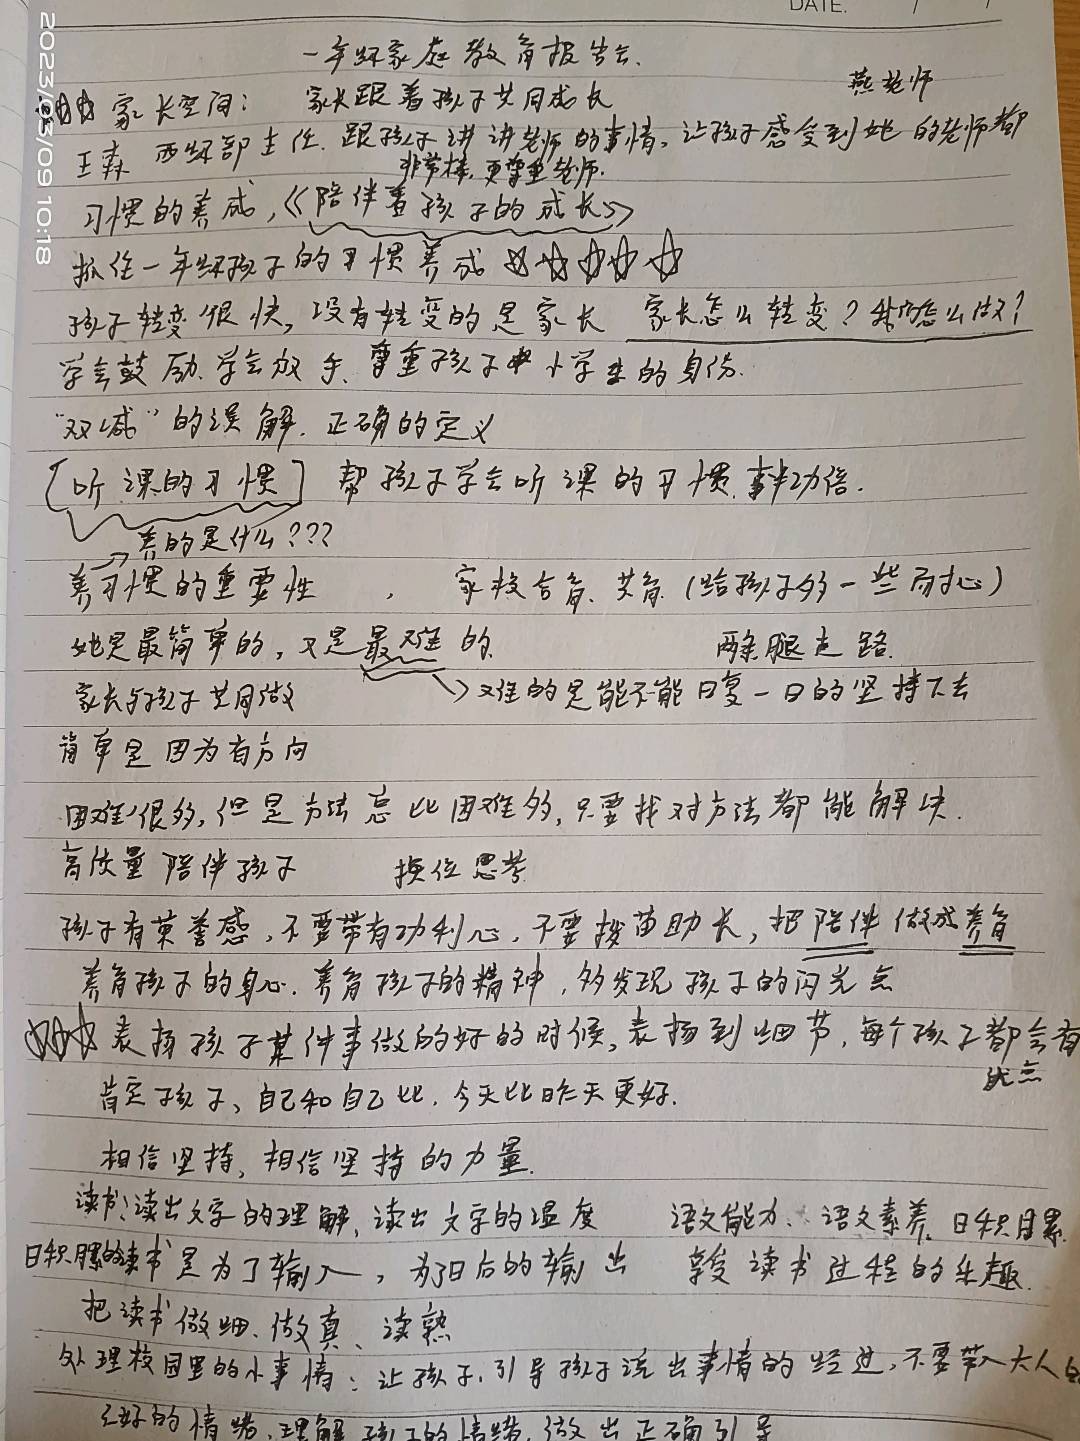 DATE. / /
2023/03/09 10:18
一年级家庭教育报告会.
燕老师
☆☆☆ 家长空间: 家长跟着孩子共同成长
王森 西级部主任. 跟孩子讲讲老师的事情, 让孩子感受到她的老师都
非常棒, 更尊重老师.
习惯的养成,《陪伴着孩子的成长》
抓住一年级孩子的习惯养成 ☆☆☆☆☆
孩子转变很快, 没有转变的是家长 家长怎么转变? 我们怎么做?
学会鼓励、学会放手、尊重孩子小学生的身份.
“双减”的误解. 正确的定义
[听课的习惯] 帮孩子学会听课的习惯. 事半功倍.
→养的是什么???
养习惯的重要性 , 家校合育、共育 (给孩子多一些耐心)
她是最简单的, 又是最难的. 两条腿走路.
家长与孩子共同做 →难的是能不能日复一日的坚持下去
简单是因为有方向
困难很多, 但是方法总比困难多, 只要找对方法都能解决.
高质量陪伴孩子 换位思考
孩子有荣誉感, 不要带有功利心, 不要拨苗助长, 把陪伴做成养育
养育孩子的身心. 养育孩子的精神, 多发现孩子的闪光点
☆☆☆ 表扬孩子某件事做的好的时候, 表扬到细节, 每个孩子都会有
优点
肯定孩子、自己和自己比. 今天比昨天更好.
相信坚持, 相信坚持的力量.
读书: 读出文字的理解, 读出文字的温度 语文能力、语文素养. 日积月累.
日积月累的读书是为了输入, 为了日后的输出 享受读书过程的乐趣.
把读书做细、做真、读熟
处理校园里的小事情: 让孩子, 引导孩子说出事情的经过, 不要带入大人的
不好的情绪, 理解孩子的情绪, 做出正确引导